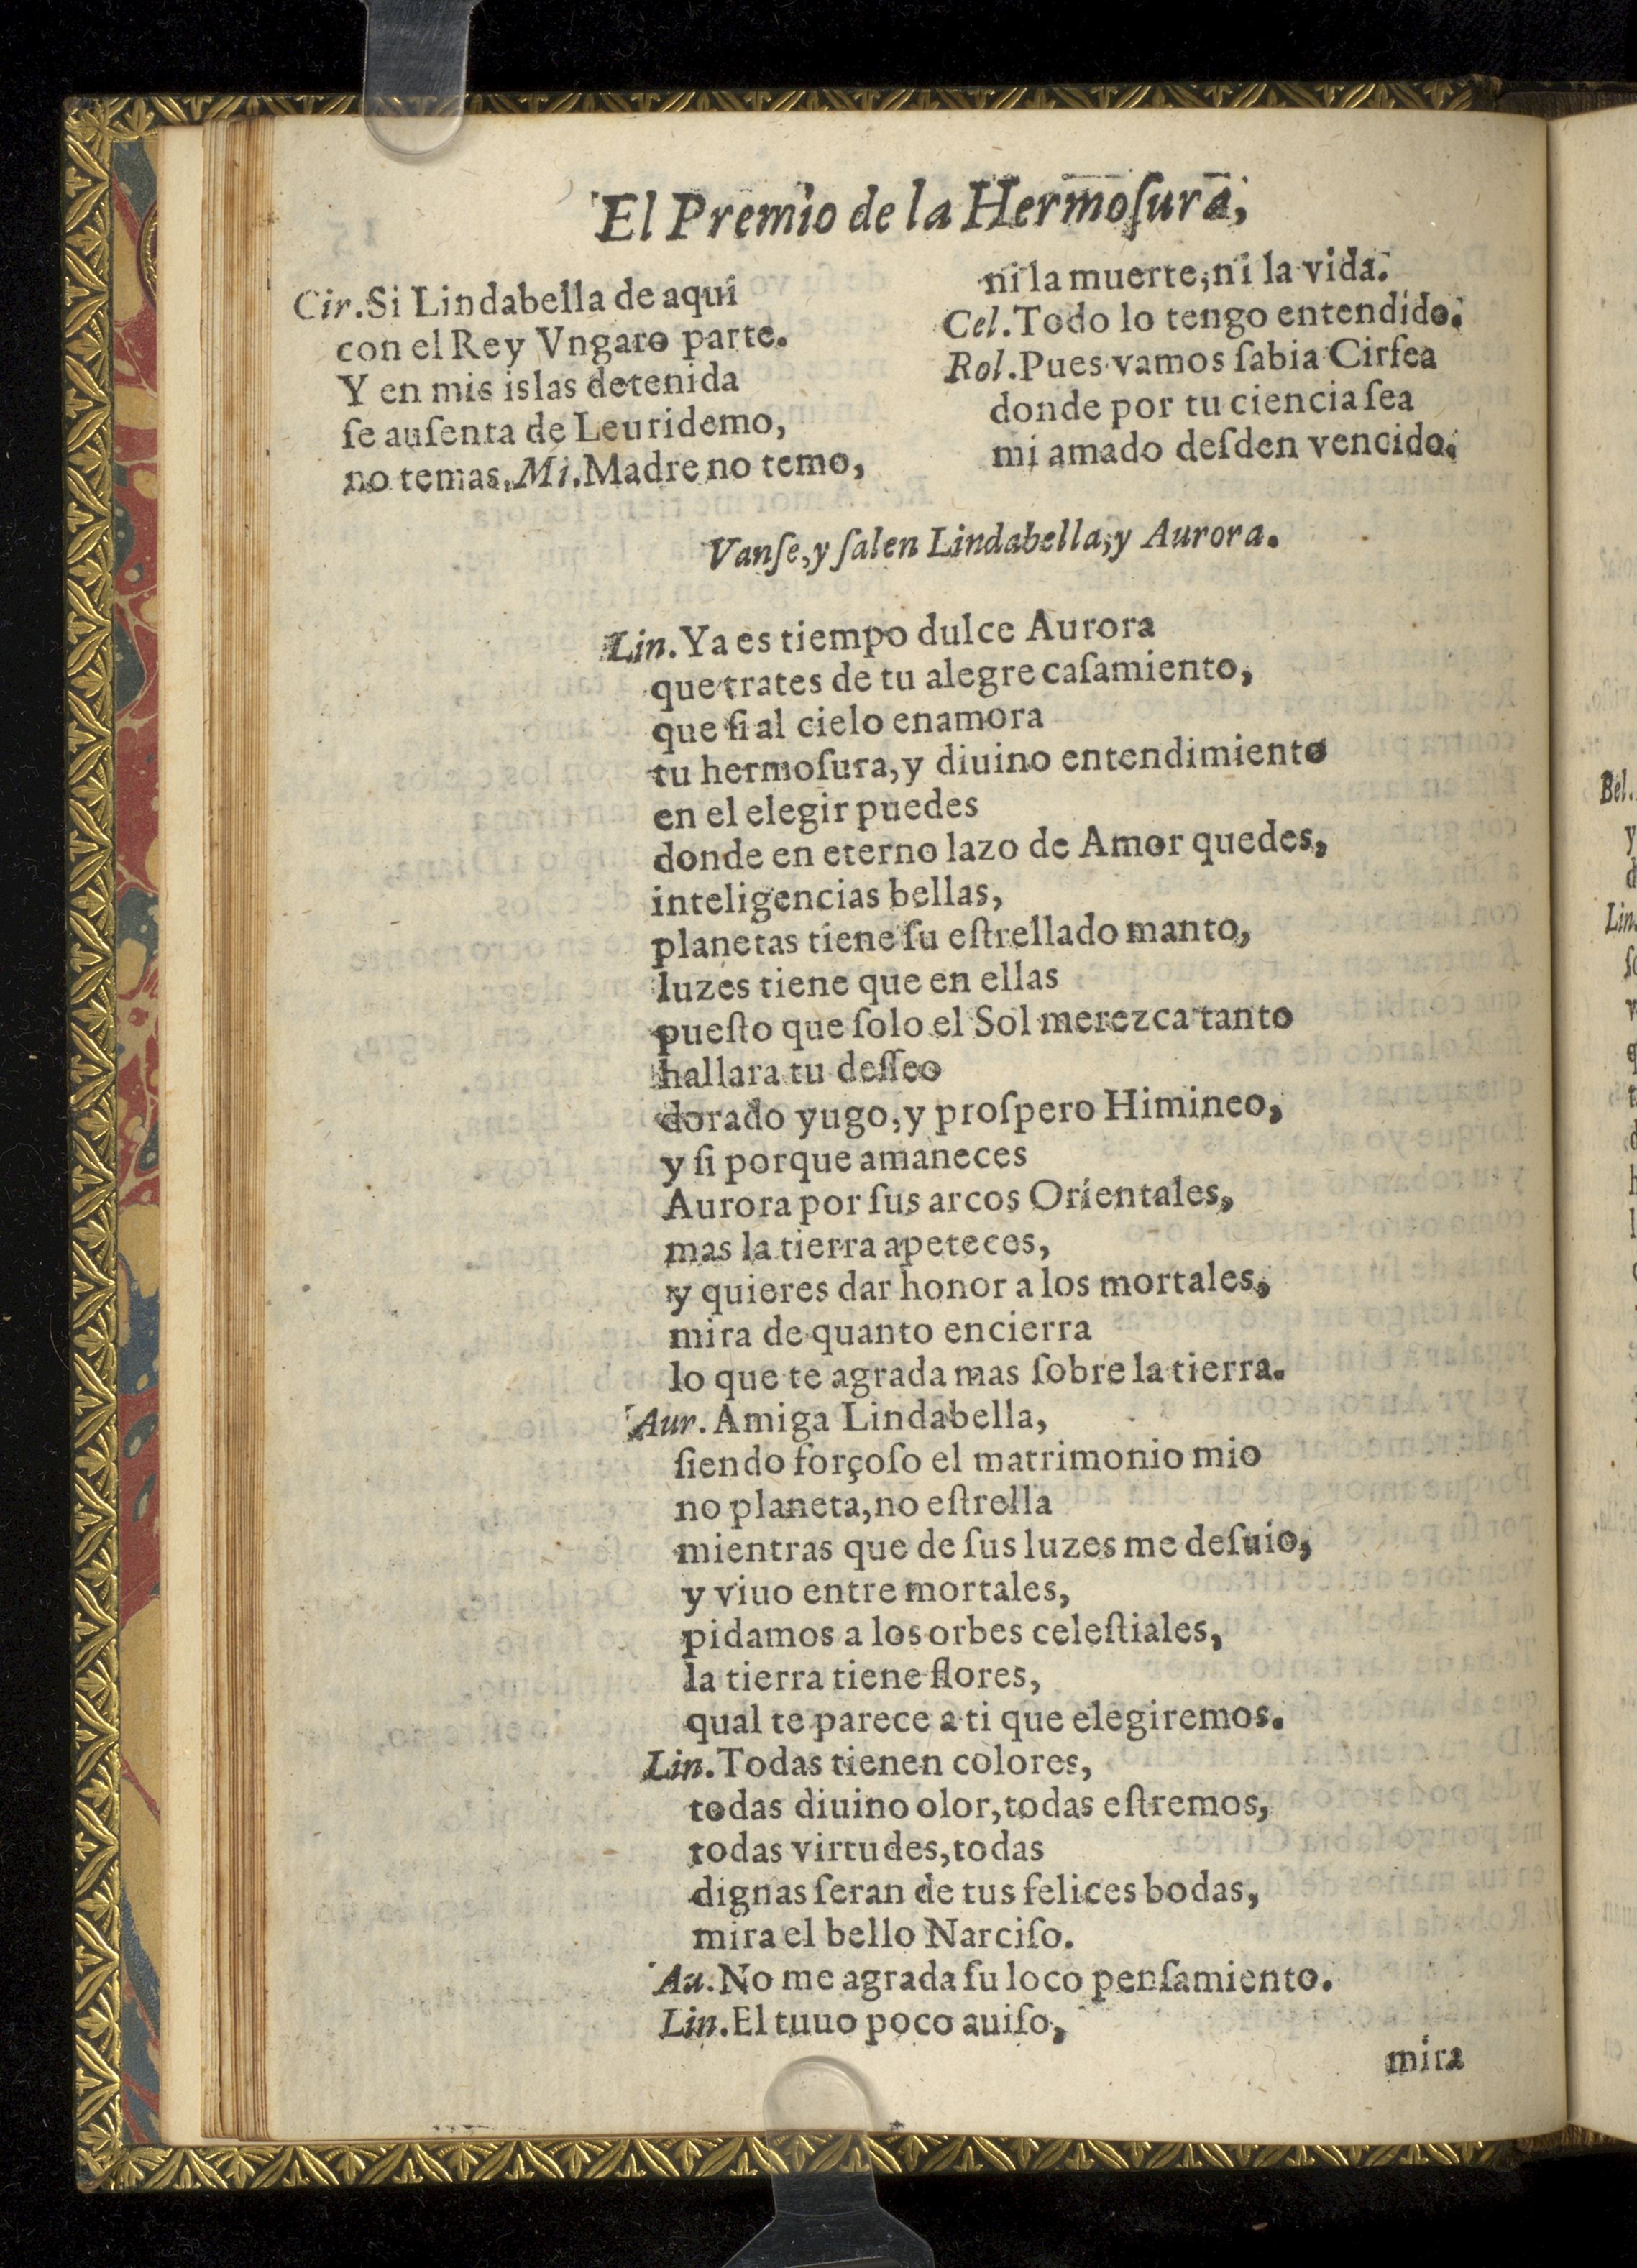 El Premio de la Hermoſura,
Cir. Si Lindabella de aqui
con el Rey Vngaro parte.
Y en mis islas detenida
ſe auſenta de Leuridemo,
no temas. Mi. Madre no temo,
ni la muerte, ni la vida.
Cel. Todo lo tengo entendido.
Rol. Pues vamos ſabia Cirſea
donde por tu ciencia ſea
mi amado deſden vencido.
Vanſe, y ſalen Lindabella, y Aurora.
Lin. Ya es tiempo dulce Aurora
que trates de tu alegre caſamiento,
que ſi al cielo enamora
tu hermoſura, y diuino entendimiento
en el elegir puedes
donde en eterno lazo de Amor quedes,
inteligencias bellas,
planetas tiene ſu eſtrellado manto,
luzes tiene que en ellas
pueſto que ſolo el Sol merezca tanto
hallara tu deſſeo
dorado yugo, y proſpero Himineo,
y ſi porque amaneces
Aurora por ſus arcos Orientales,
mas la tierra apeteces,
y quieres dar honor a los mortales,
mira de quanto encierra
lo que te agrada mas ſobre la tierra.
Aur. Amiga Lindabella,
ſiendo forçoſo el matrimonio mio
no planeta, no eſtrella
mientras que de ſus luzes me deſuio,
y viuo entre mortales,
pidamos a los orbes celeſtiales,
la tierra tiene flores,
qual te parece a ti que elegiremos.
Lin. Todas tienen colores,
todas diuino olor, todas eſtremos,
todas virtudes, todas
dignas ſeran de tus felices bodas,
mira el bello Narciſo.
Au. No me agrada ſu loco penſamiento.
Lin. El tuuo poco auiſo,
mira
Bel.
Lin.